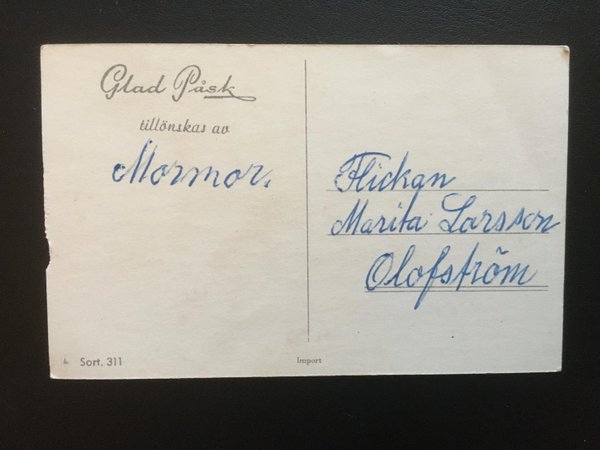 Glad Påsk
tillönskas av
Mormor.
Flickan
Marita Larsson
Olofström
Sort. 311
Import